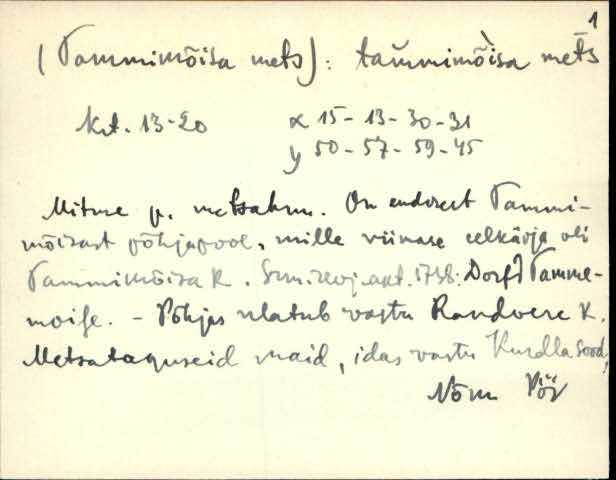 1
(Tammimõisa mets): tam̆mimõ̀isa mets̄
Krt. 13-20 x 15-13-30-31
y 50-57-59-45
Mitme p. metsatum. On endisest Tammi-
mõisast põhjapool, mille viimase eelkäija oli
Tammimõisa K. 1738: Dorf Tamme-
moise. - Põhjas ulatub vastu Randvere K.
Metsataguseid maid, idas vastu Kurdla sood,
Nõm Pöi